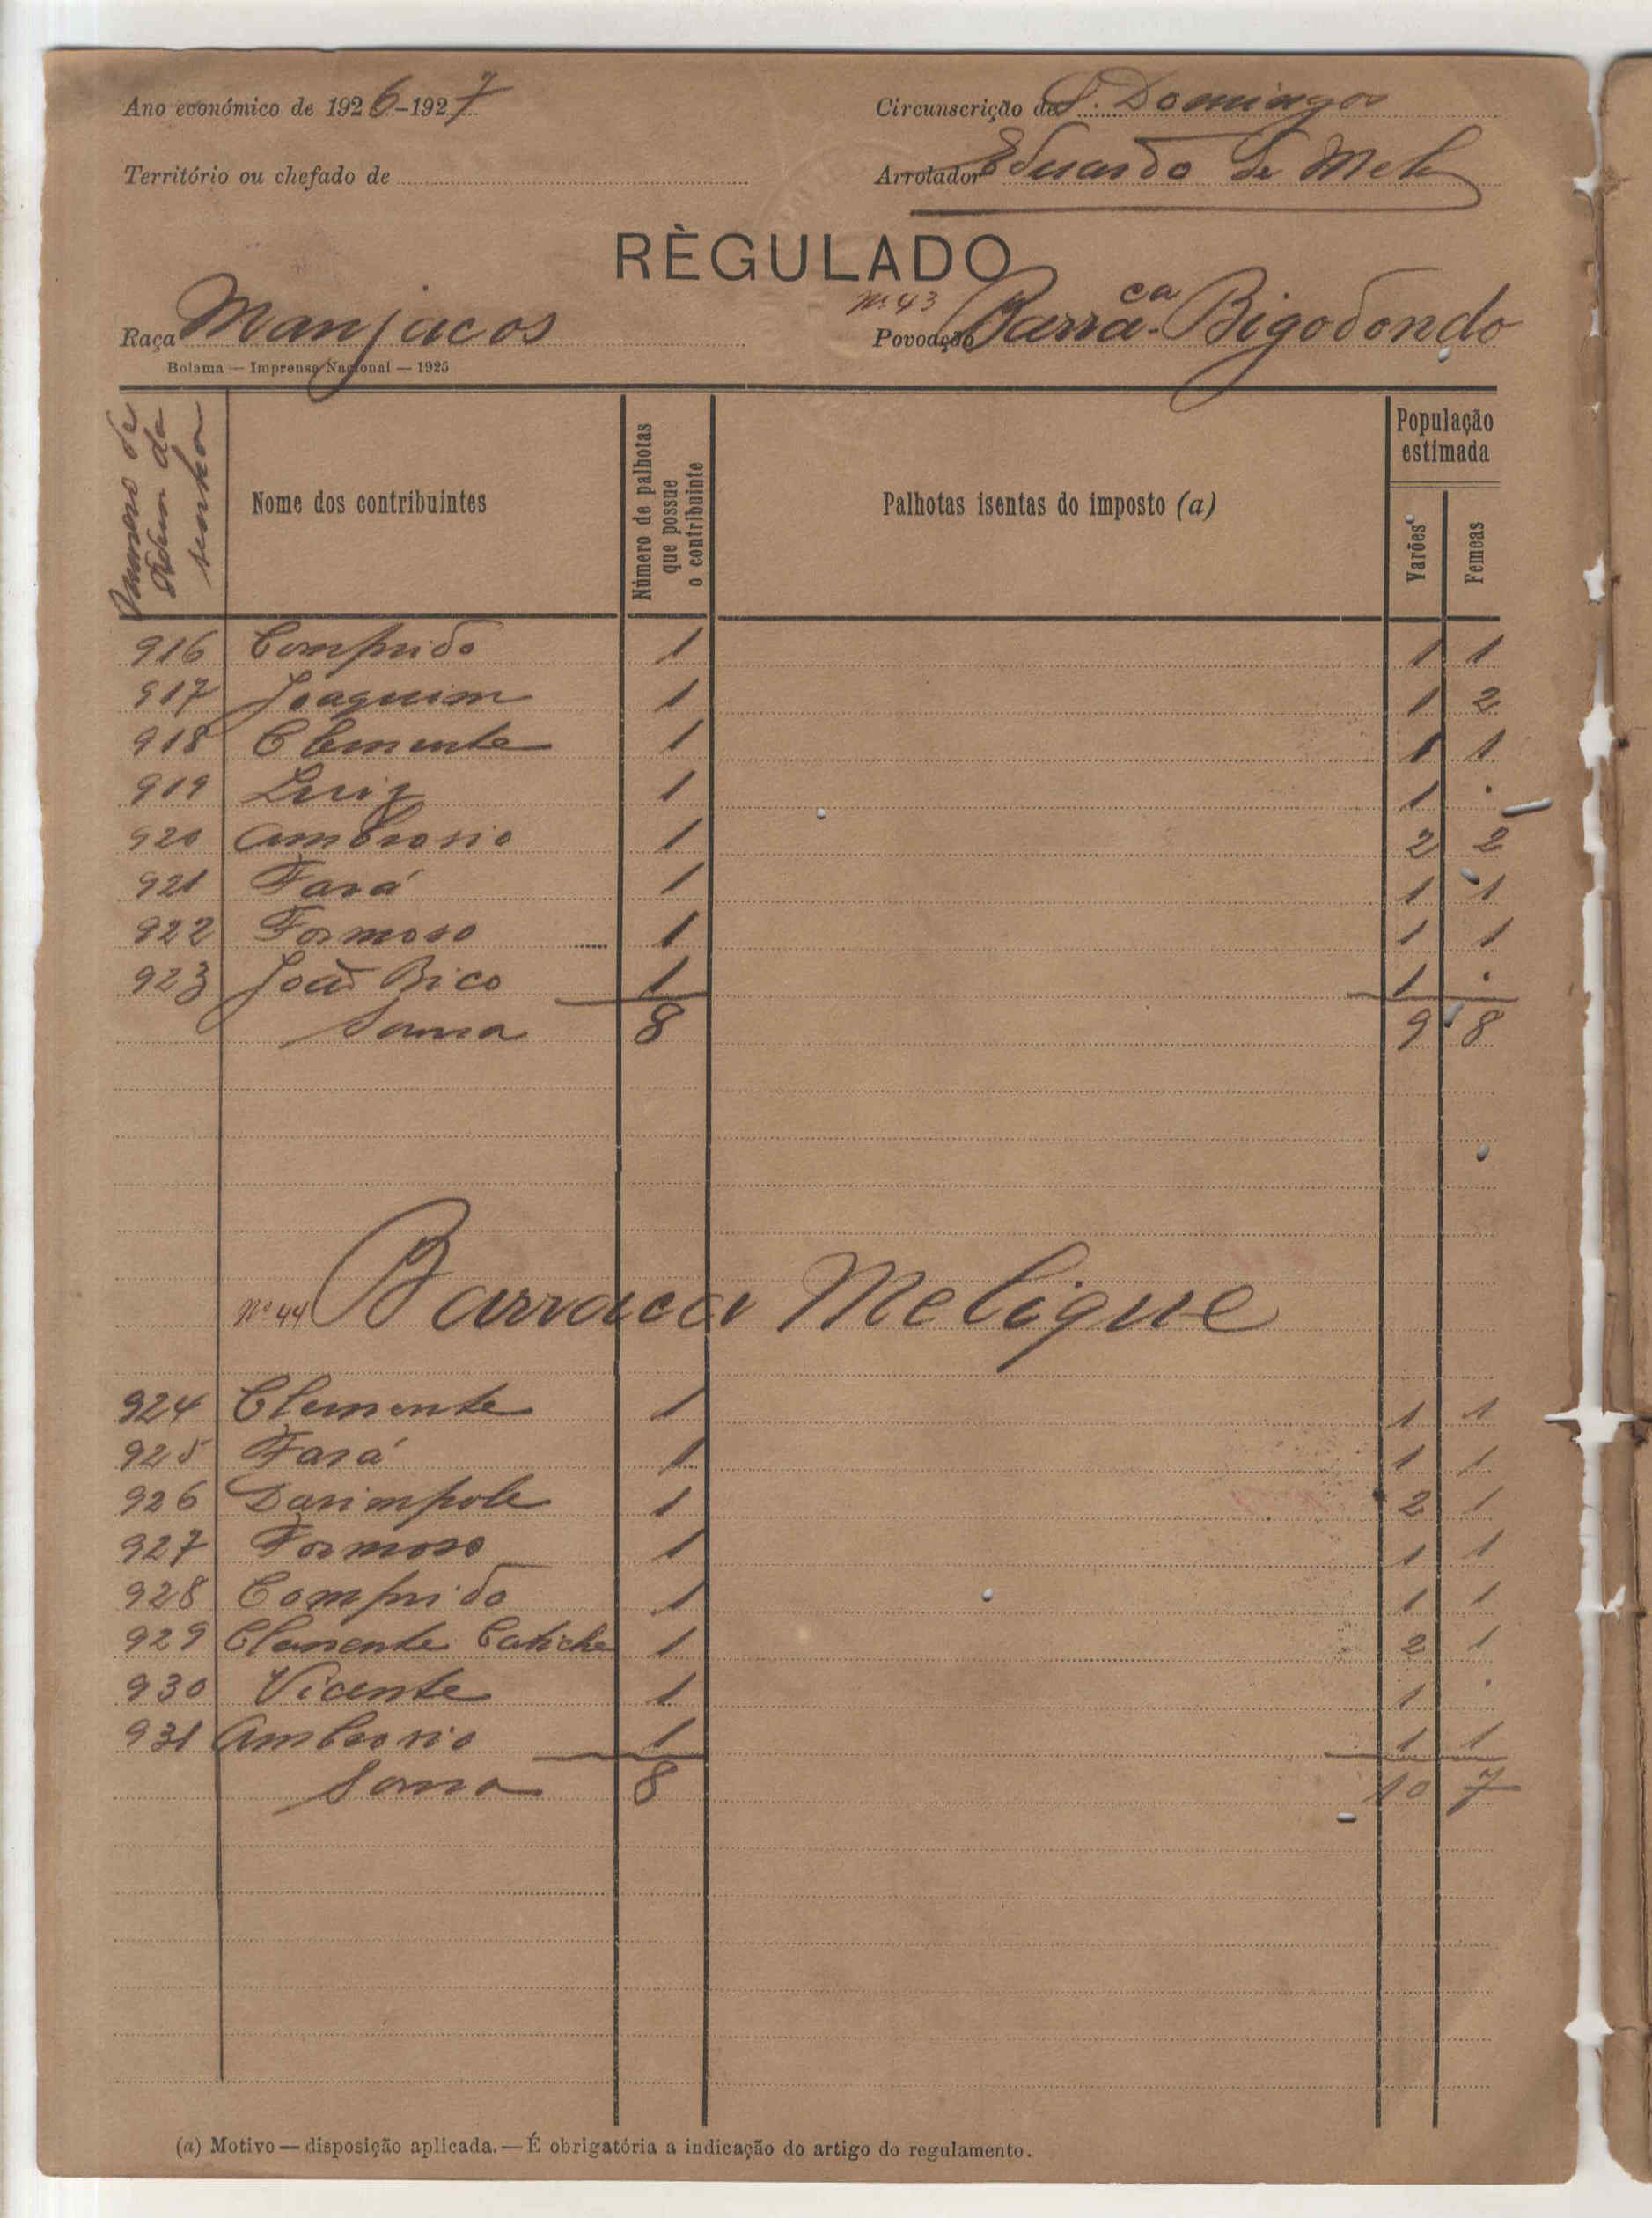 Ano económico de 1926-1927
Circunscrição de S. Domingos
Território ou chefado de
Arrolador Eduardo de Melo
RÈGULADO
Raça Manjacos
Nº 43
Povoação Barra.ca Bigodondo
Bolama — Imprensa Nacional — 1925
Numero de Ordem da senha
Nome dos contribuintes
Número de palhotas que possue o contribuinte
Palhotas isentas do imposto (a)
População estimada
Varões
Femeas
916 Comprido 1 1 1
917 Joaquim 1 1 2
918 Clemente 1 1 1
919 Luiz 1 1 .
920 Ambrosio 1 2 2
921 Fará 1 1 1
922 Formoso 1 1 1
923 João Bico 1 1 .
Soma 8 9 8
Nº 44 Barraca Melique
924 Clemente 1 1 1
925 Fará 1 1 1
926 Darimpole 1 2 1
927 Formoso 1 1 1
928 Comprido 1 1 1
929 Clemente Catiche 1 2 1
930 Vicente 1 1 .
931 Ambrosio 1 1 1
Soma 8 10 7
(a) Motivo — disposição aplicada. — É obrigatória a indicação do artigo do regulamento.